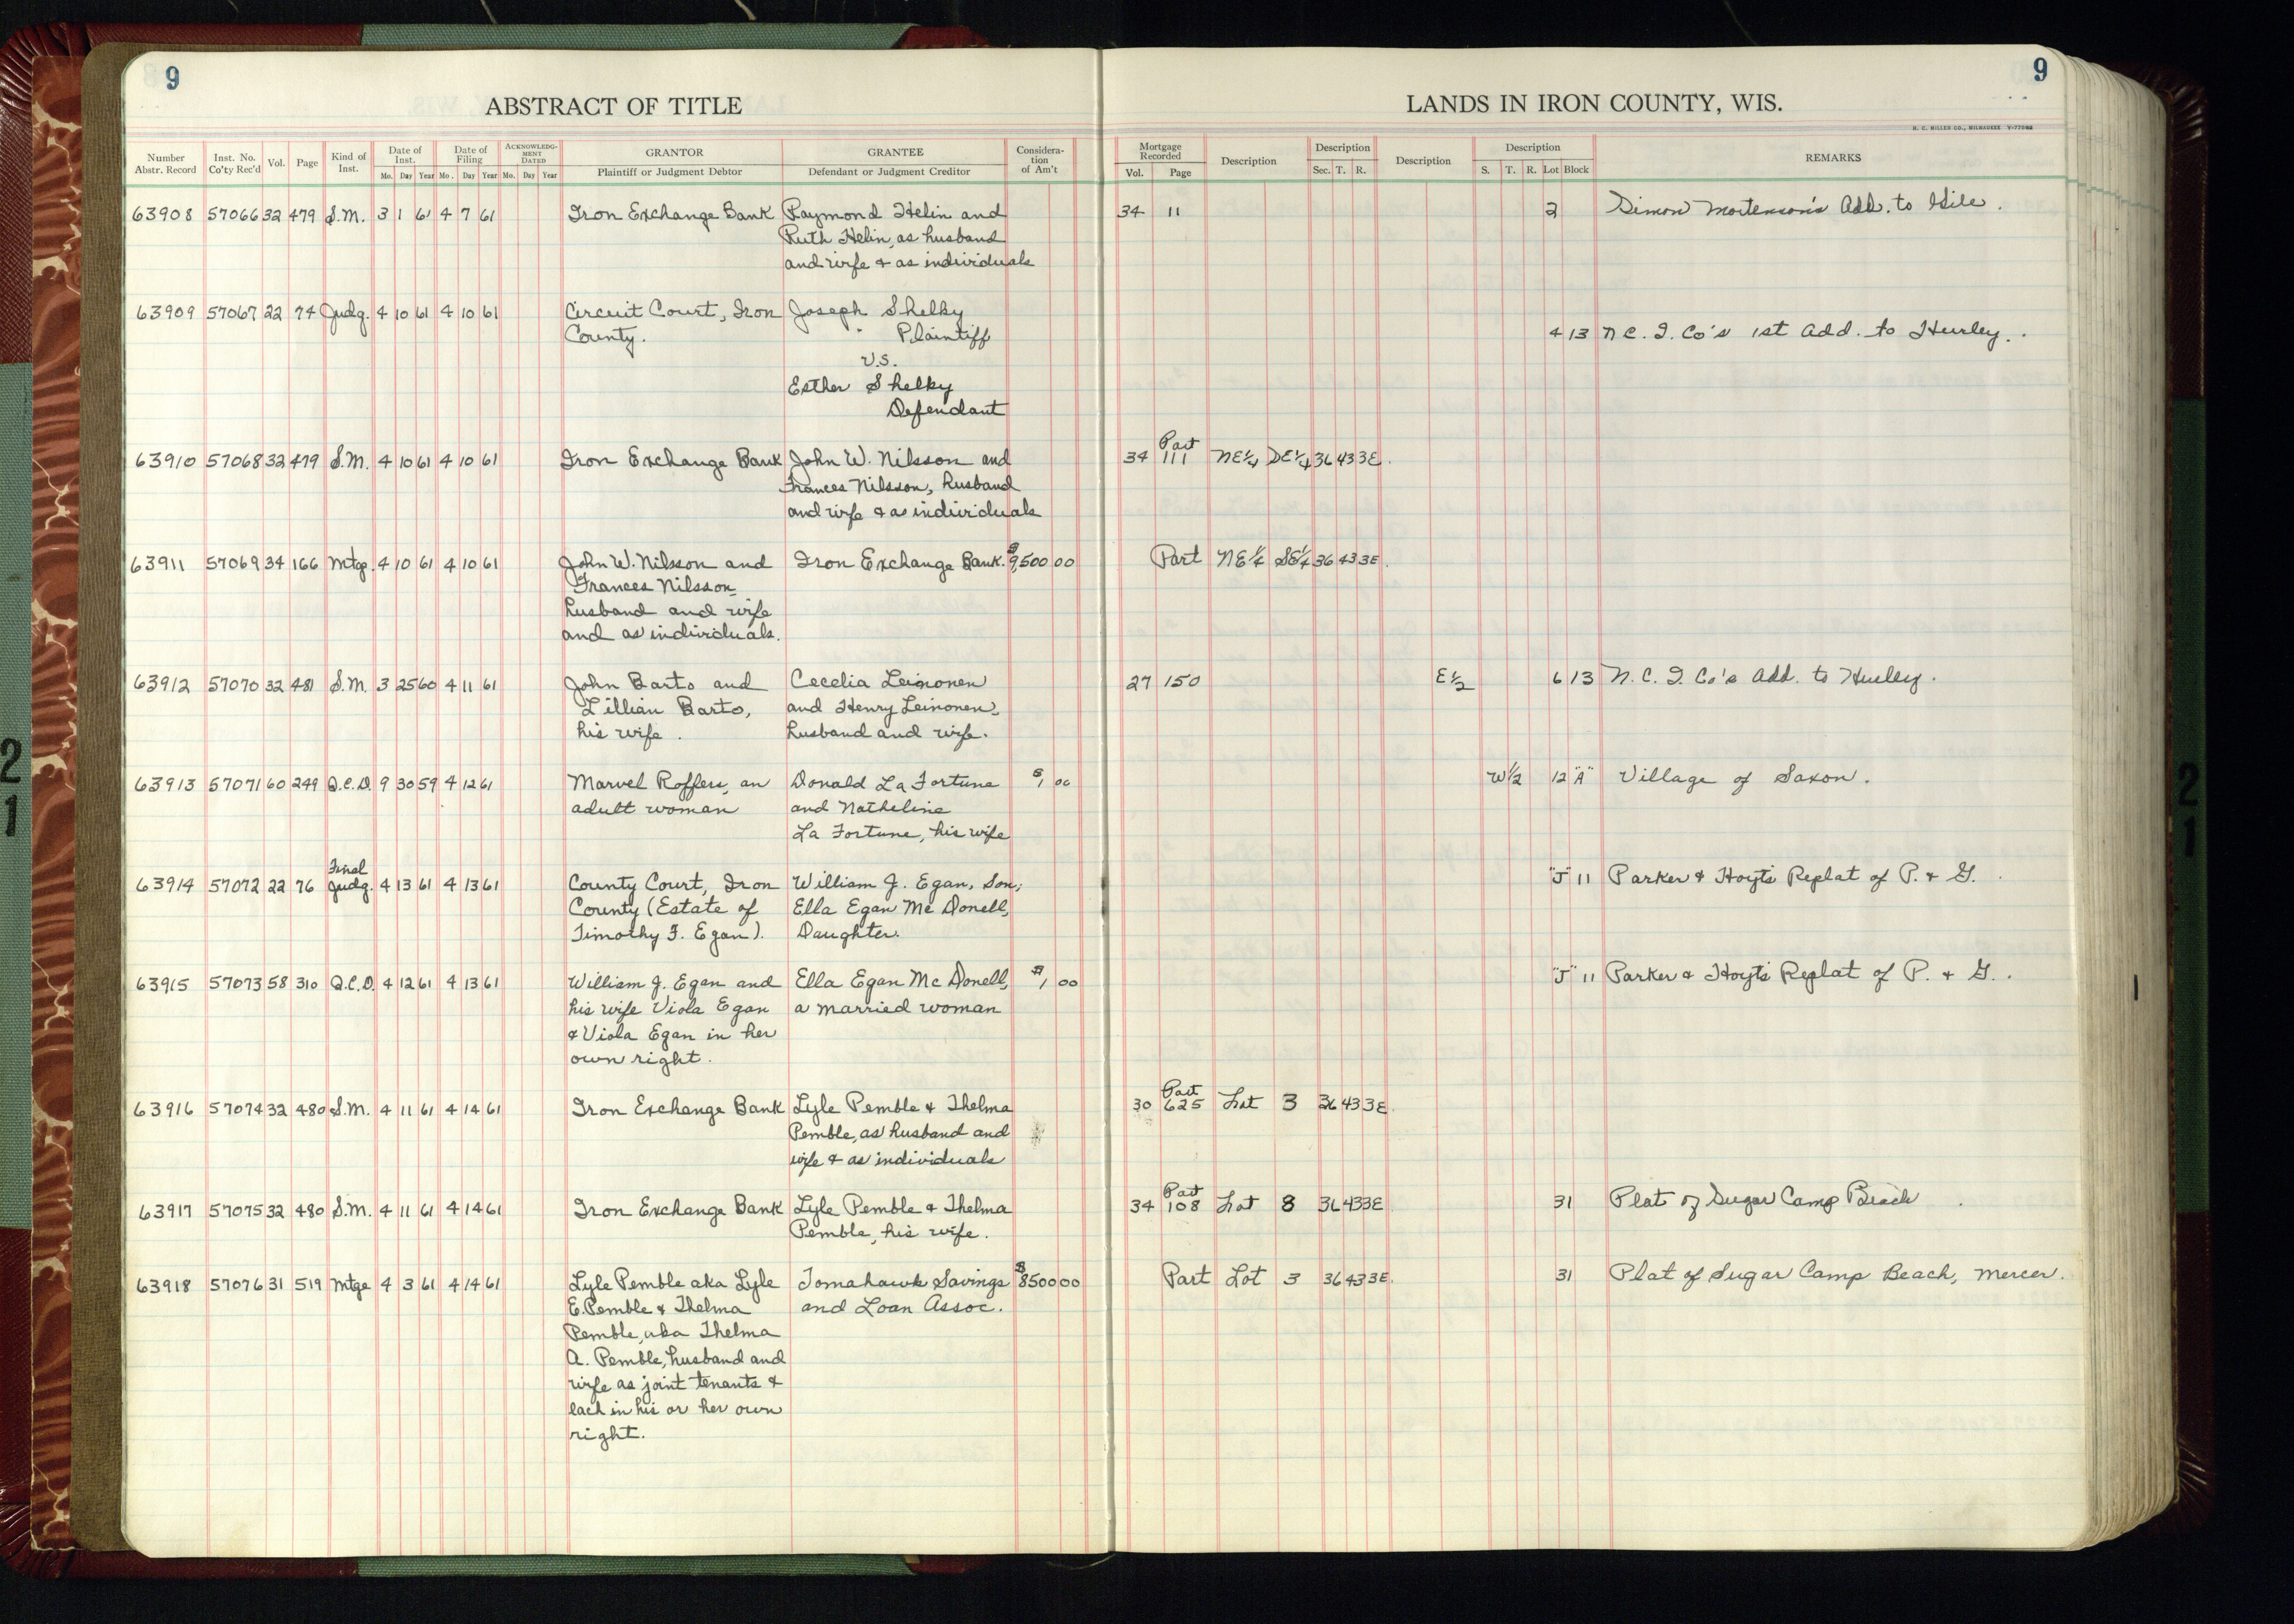 9
9
ABSTRACT OF TITLE
LANDS IN IRON COUNTY, WIS.
H. C. MILLER CO., MILWAUKEE
Number Abstr. Record Inst. No. Co'ty Rec'd Vol. Page Kind of Inst. Date of Inst. Mo. Day Year Date of Filing Mo. Day Year ACKNOWLEDGMENT DATED Mo. Day Year GRANTOR Plaintiff or Judgment Debtor GRANTEE Defendant or Judgment Creditor Consideration of Am't
Mortgage Recorded Vol. Page Description Description Sec. T. R. Description Description S. T. R. Lot Block REMARKS
63908 57066 32 479 S.M. 3 1 61 4 7 61 Iron Exchange Bank Raymond Helin and 34 11 2 Simon Mortenson's Add. to Gile.
Ruth Helin, as husband
and wife & as individuals
63909 57067 22 74 Judg. 4 10 61 4 10 61 Circuit Court, Iron Joseph Shelky
County. Plaintiff 4 13 N.C.I. Co's 1st Add. to Hurley.
V.S.
Esther Shelky
Defendant
63910 57068 32 479 S.M. 4 10 61 4 10 61 Iron Exchange Bank John W. Nilsson and 34 Part 111 NE¼ SE¼ 36 43 3E.
Frances Nilsson, husband
and wife & as individuals
63911 57069 34 166 Mtg. 4 10 61 4 10 61 John W. Nilsson and Iron Exchange Bank. $9,500 00 Part NE¼ SE¼ 36 43 3E.
Frances Nilsson,
husband and wife
and as individuals.
63912 57070 32 481 S.M. 3 25 60 4 11 61 John Barto and Cecelia Leinonen 27 150 E½ 6 13 N.C.I. Co's Add. to Hurley.
Lillian Barto, and Henry Leinonen,
his wife. husband and wife.
63913 57071 60 249 Q.C.D. 9 30 59 4 12 61 Marvel Roffers, an Donald La Fortune $1 00 W½ 12 "A" Village of Saxon.
adult woman and Natheline
La Fortune, his wife
63914 57072 22 76 Final Judg. 4 13 61 4 13 61 County Court, Iron William J. Egan, Son; "J" 11 Parker & Hoyt's Replat of P. & G.
County (Estate of Ella Egan Mc Donell,
Timothy F. Egan). Daughter.
63915 57073 58 310 Q.C.D. 4 12 61 4 13 61 William J. Egan and Ella Egan Mc Donell, $1 00 "J" 11 Parker & Hoyt's Replat of P. & G.
his wife Viola Egan a married woman
& Viola Egan in her
own right.
63916 57074 32 480 S.M. 4 11 61 4 14 61 Iron Exchange Bank Lyle Pemble & Thelma 30 Part 625 Lot 3 36 43 3E.
Pemble, as husband and
wife & as individuals
63917 57075 32 480 S.M. 4 11 61 4 14 61 Iron Exchange Bank Lyle Pemble & Thelma 34 Part 108 Lot 8 36 43 3E 31 Plat of Sugar Camp Beach
Pemble, his wife.
63918 57076 31 519 Mtge 4 3 61 4 14 61 Lyle Pemble aka Lyle Tomahawk Savings $8500 00 Part Lot 3 36 43 3E. 31 Plat of Sugar Camp Beach, Mercer.
E. Pemble & Thelma and Loan Assoc.
Pemble, aka Thelma
A. Pemble, husband and
wife as joint tenants &
each in his or her own
right.
21
21